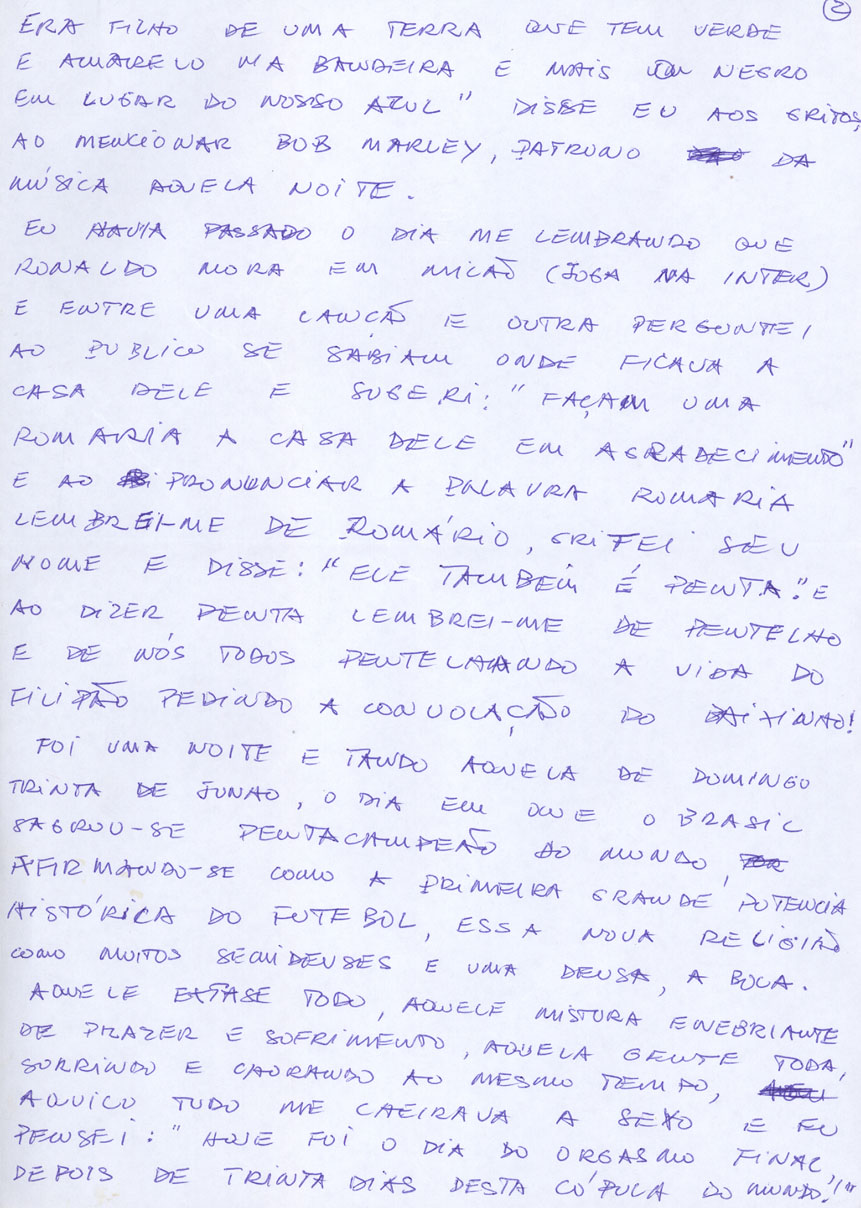 2
ERA FILHO DE UMA TERRA QUE TEM VERDE
E AMARELO NA BANDEIRA E MAIS UM NEGRO
EM LUGAR DO NOSSO AZUL" DISSE EU AOS GRITOS,
AO MENCIONAR BOB MARLEY, PATRONO DA
MÚSICA AQUELA NOITE.
EU HAVIA PASSADO O DIA ME LEMBRANDO QUE
RONALDO MORA EM MILÃO (JOGA NA INTER)
E ENTRE UMA CANCÃO E OUTRA PERGUNTEI
AO PUBLICO SE SABIAM ONDE FICAVA A
CASA DELE E SUGERI: "FAÇAM UMA
ROMARIA A CASA DELE EM AGRADECIMENTO"
E AO PRONUNCIAR A PALAVRA ROMARIA
LEMBREI-ME DE ROMÁRIO, GRITEI SEU
NOME E DISSE: "ELE TAMBÉM É PENTA." E
AO DIZER PENTA LEMBREI-ME DE PENTELHO
E DE NÓS TODOS PENTELHANDO A VIDA DO
FILIPÃO PEDINDO A CONVOLAÇÃO DO BAIXINHO!
FOI UMA NOITE E TANDO AQUELA DE DOMINGO
TRINTA DE JUNHO, O DIA EM QUE O BRASIL
SAGROU-SE PENTACAMPEÃO DO MUNDO,
AFIRMANDO-SE COMO A PRIMEIRA GRANDE POTENCIA
HISTÓRICA DO FUTEBOL, ESSA NOVA RELIGIÃO
COMO MUITOS SEMIDEUSES E UMA DEUSA, A BOLA.
AQUELE EXTASE TODO, AQUELE MISTURA ENEBRIANTE
DE PRAZER E SOFRIMENTO, AQUELA GENTE TODA,
SORRINDO E CHORANDO AO MESMO TEMPO,
AQUILO TUDO ME CHEIRAVA A SEXO E EU
PENSEI: "HOJE FOI O DIA DO ORGASMO FINAL,
DEPOIS DE TRINTA DIAS DESTA CÓPULA DO MUNDO!"